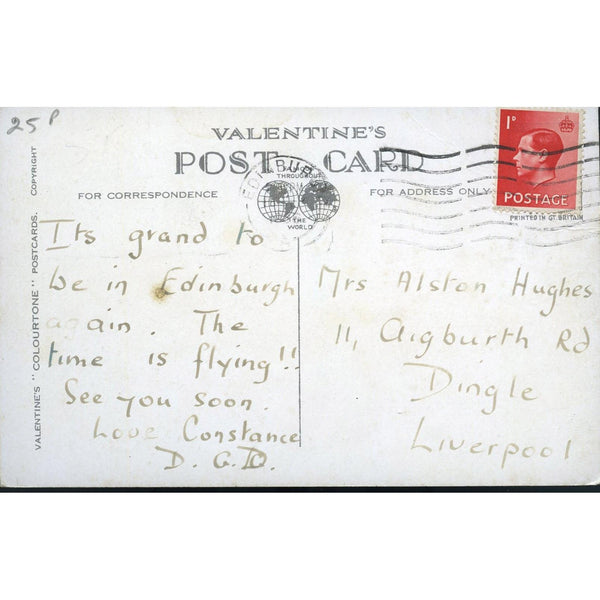 25P
VALENTINE'S
POST CARD
FOR CORRESPONDENCE
THROUGHOUT
THE
WORLD
FOR ADDRESS ONLY
1D
POSTAGE
PRINTED IN GT. BRITAIN
EDINBURGH
VALENTINE'S "COLOURTONE" POSTCARDS. COPYRIGHT
Its grand to
be in Edinburgh
again. The
time is flying!!
See you soon.
Love Constance
D. G. D.
Mrs Alston Hughes
11, Aigburth Rd
Dingle
Liverpool